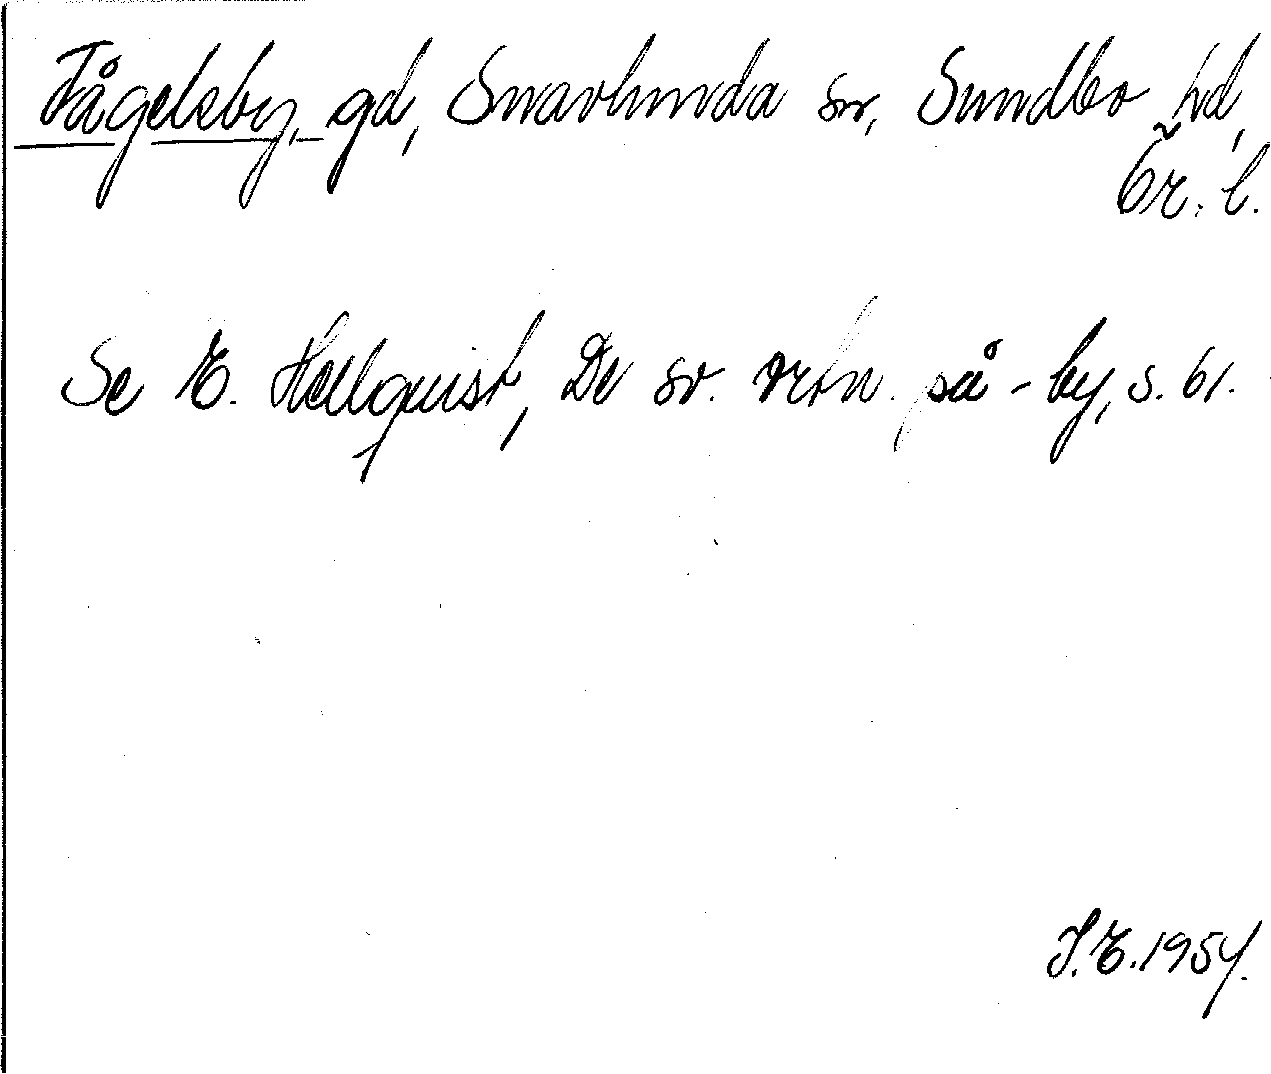 Fågelsby, gd, Snavlunda sn, Sundbo hd,
Ör. l.
Se E. Hellquist, De sv. ortn. på -by, s. 61.
I.E. 1954.